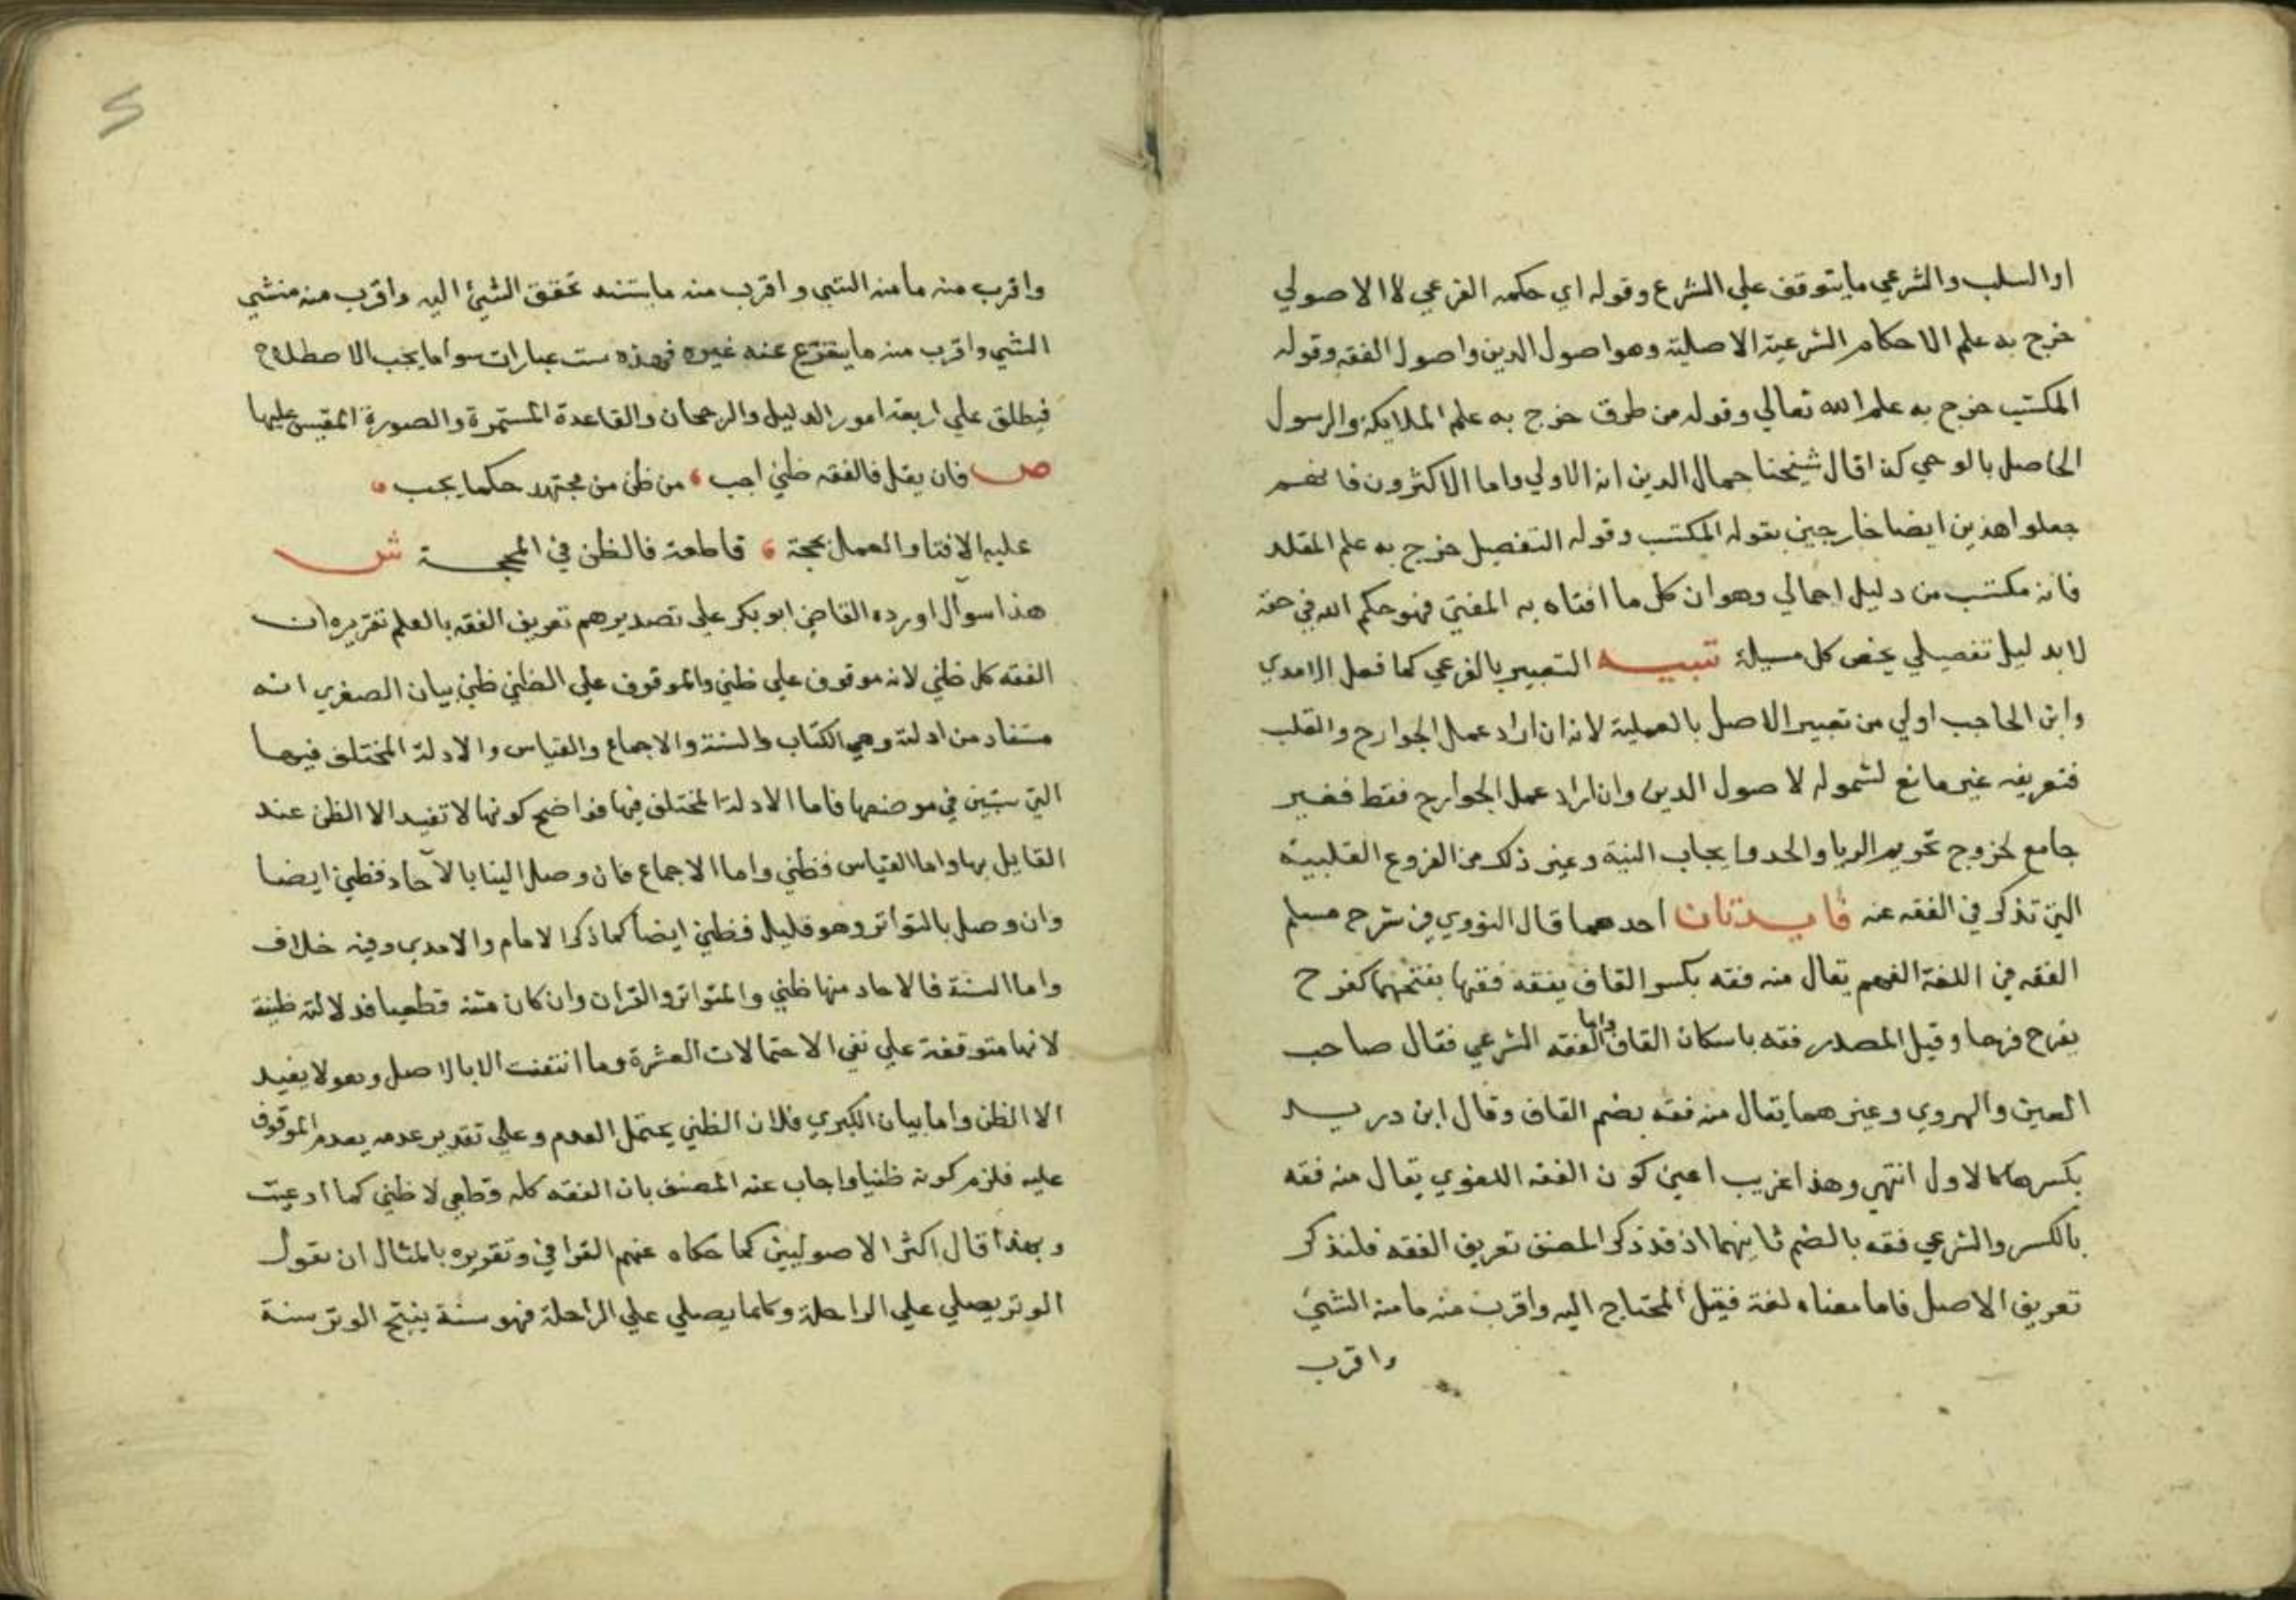 او السلب والشرعي ما يتوقف علي الشرع وقوله اي حكمه الفرعي لا الاصولي
خرج به علم الاحكام الشرعية الاصلية وهو اصول الدين واصول الفقه وقوله
المكتسب خرج به علم الله تعالي وقوله من طرق خرج به علم الملايكة والرسول
الحاصل بالوحي كذا قال شيخنا جمال الدين انه الاولي واما الاكثرون فانهم
جعلوا هذين ايضا خارجين بقوله المكتسب وقوله التفصيل خرج به علم المقلد
فانه مكتسب من دليل اجمالي وهو ان كل ما افتاه به المفتي فهو حكم الله في حقه
لا بد ليل تفصيلي يخص كل مسيلة تنبيه التعبير بالفرعي كما فعل الامدي
وابن الحاجب اولي من تعبير الاصل بالعملية لانه ان اراد عمل الجوارح والقلب
فتعريفه غير مانع لشموله لاصول الدين وان اراد عمل الجوارح فقط فغير
جامع لخروج تحريم الريا والحد وايجاب النية وغير ذلك من الفروع القلبية
التي تذكر في الفقه عنه فايدتان احدهما قال النووي في شرح مسلم
الفقه في اللغة الفهم يقال منه فقه بكسر القاف يفقه فقها بفتحهما كفرح
يفرح فرحا وقيل المصدر فقه باسكان القاف واما الفقه الشرعي فقال صاحب
العين والهروي وغيرهما يقال منه فقه بضم القاف وقال ابن دريد
بكسرها كالاول انتهي وهذا غريب اعني كون الفقه اللغوي يقال منه فقه
بالكسر والشرعي فقه بالضم ثانيهما اذ قد ذكر المصنف تعريف الفقه فلنذكر
تعريف الاصل فاما معناه لغة فقيل المحتاج اليه واقرب منه ما منه الشيئ
واقرب
واقرب منه ما منه الشي واقرب منه ما يستند تحقق الشيئ اليه واقرب منه منشي
الشي واقرب منه ما يتفرع عنه غيره فهذه ست عبارات سوا ما يجب الاصطلاح
فيطلق علي اربعة امور الدليل والرجحان والقاعدة المستمرة والصورة المقيس عليها
ص فان يقل فالفقه ظني اجب من ظن من مجتهد حكما يجب
عليه الافتا والعمل بحجة قاطعة فالظن في المحجة ش
هذا سوآل اورده القاضي ابو بكر علي تصديرهم تعريف الفقه بالعلم تقريره ان
الفقه كل ظني لانه موقوف علي ظني والموقوف علي الظني ظني بيان الصغري انه
مستفاد من ادلته وهي الكتاب والسنة والاجماع والقياس والادلة المختلف فيها
التي ستبين في موضعها فاما الادلة المختلف فيها فواضح كونها لا تفيد الا الظن عند
القايل بها واما القياس فظني واما الاجماع فان وصل الينا بالآحاد فظني ايضا
وان وصل بالتواتر وهو قليل فظني ايضا كما ذكر الامام والامدي وفيه خلاف
واما السنة فالاحاد منها ظني والمتواتر والقران وان كان متنه قطعيا فدلالته ظنية
لانها متوقفة علي نفي الاحتمالات العشرة وما انتفت الا بالاصل وهو لا يفيد
الا الظن واما بيان الكبري فلان الظني يحتمل العدم وعلي تقدير عدمه يعدم الموقوف
عليه فلزم كونه ظنيا واجاب عنه المصنف بان الفقه كله قطعي لا ظني كما ادعيت
وبهذا قال اكثر الاصوليين كما حكاه عنهم القرافي وتقويره بالمثال ان نقول
الوتر يصلي علي الراحلة وكلما يصلي علي الراحلة فهو سنة ينتج الوتر سنة